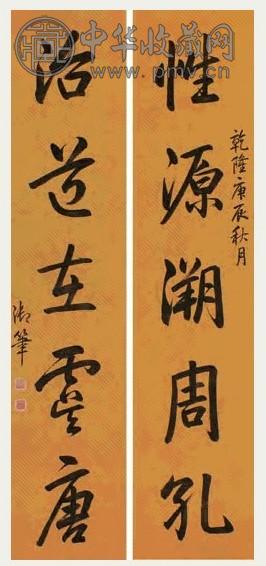 中华收藏网
www.pmv.cn
乾隆庚辰秋月
性源溯周孔
治道在虞唐
御筆